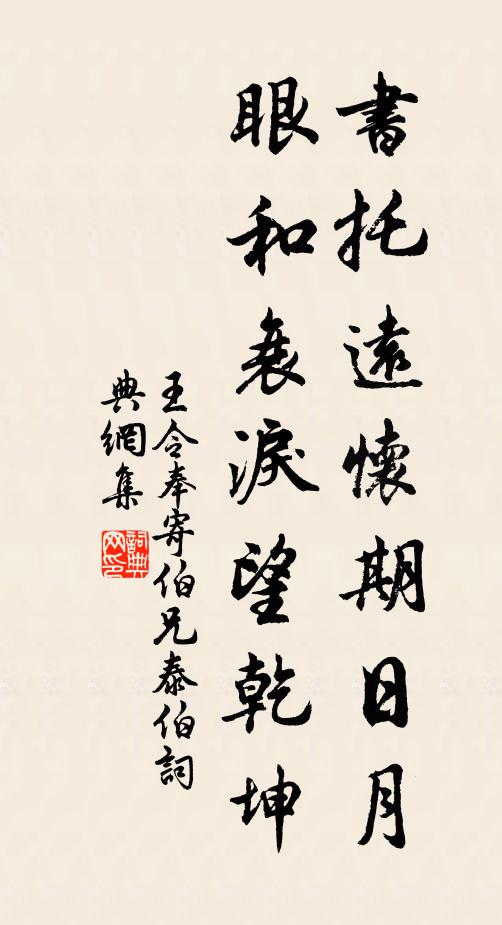 書托遠懷期日月
眼和衰淚望乾坤
王令奉寄伯兄泰伯詞
典網集
詞典
网印